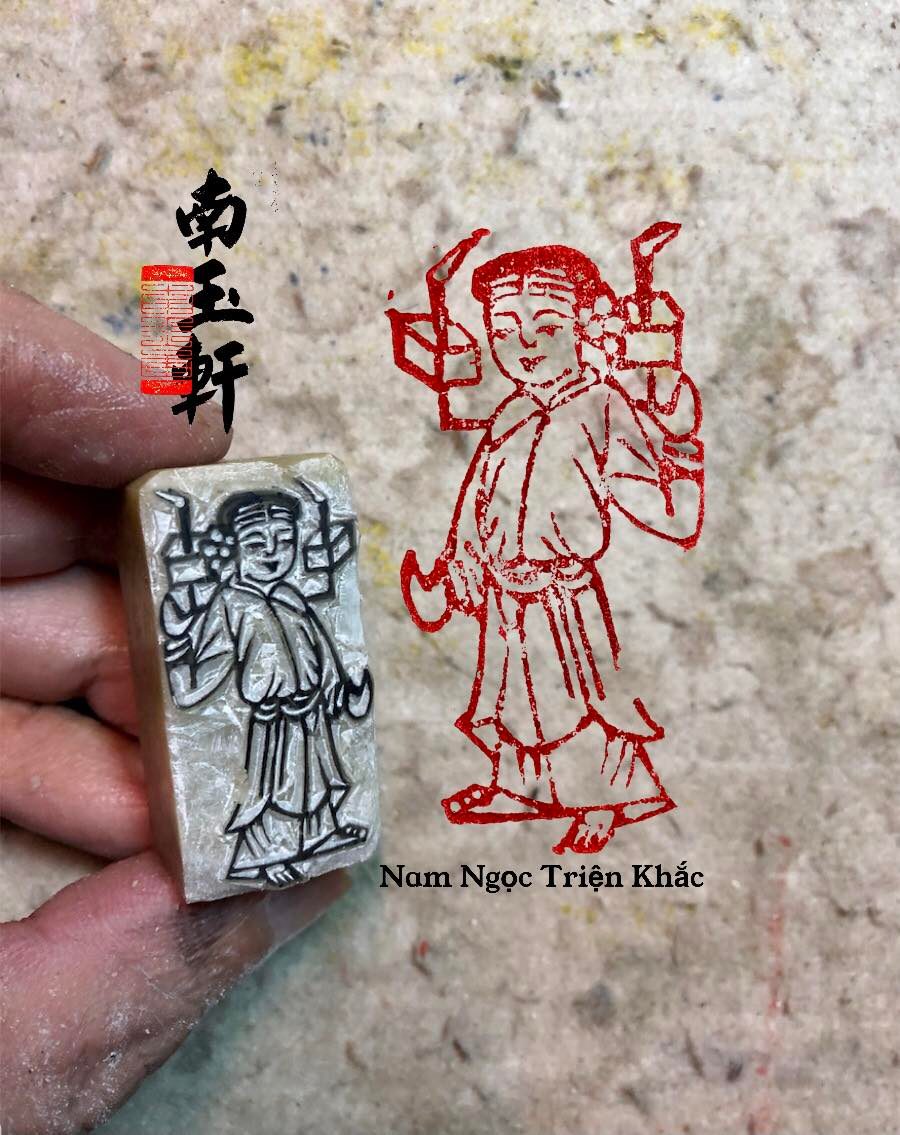 南玉軒
Nam Ngọc Triện Khắc